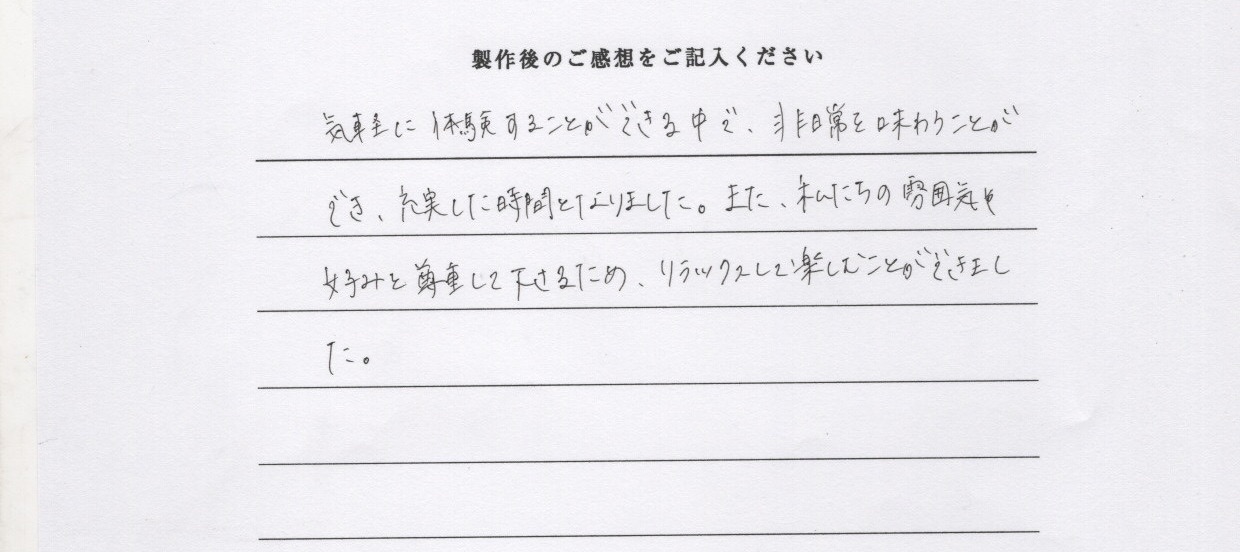 製作後のご感想をご記入ください
気軽に体験することができる中で、非日常を味わうことが
でき、充実した時間となりました。また、私たちの雰囲気や
好みを尊重して下さるため、リラックスして楽しむことができまし
た。